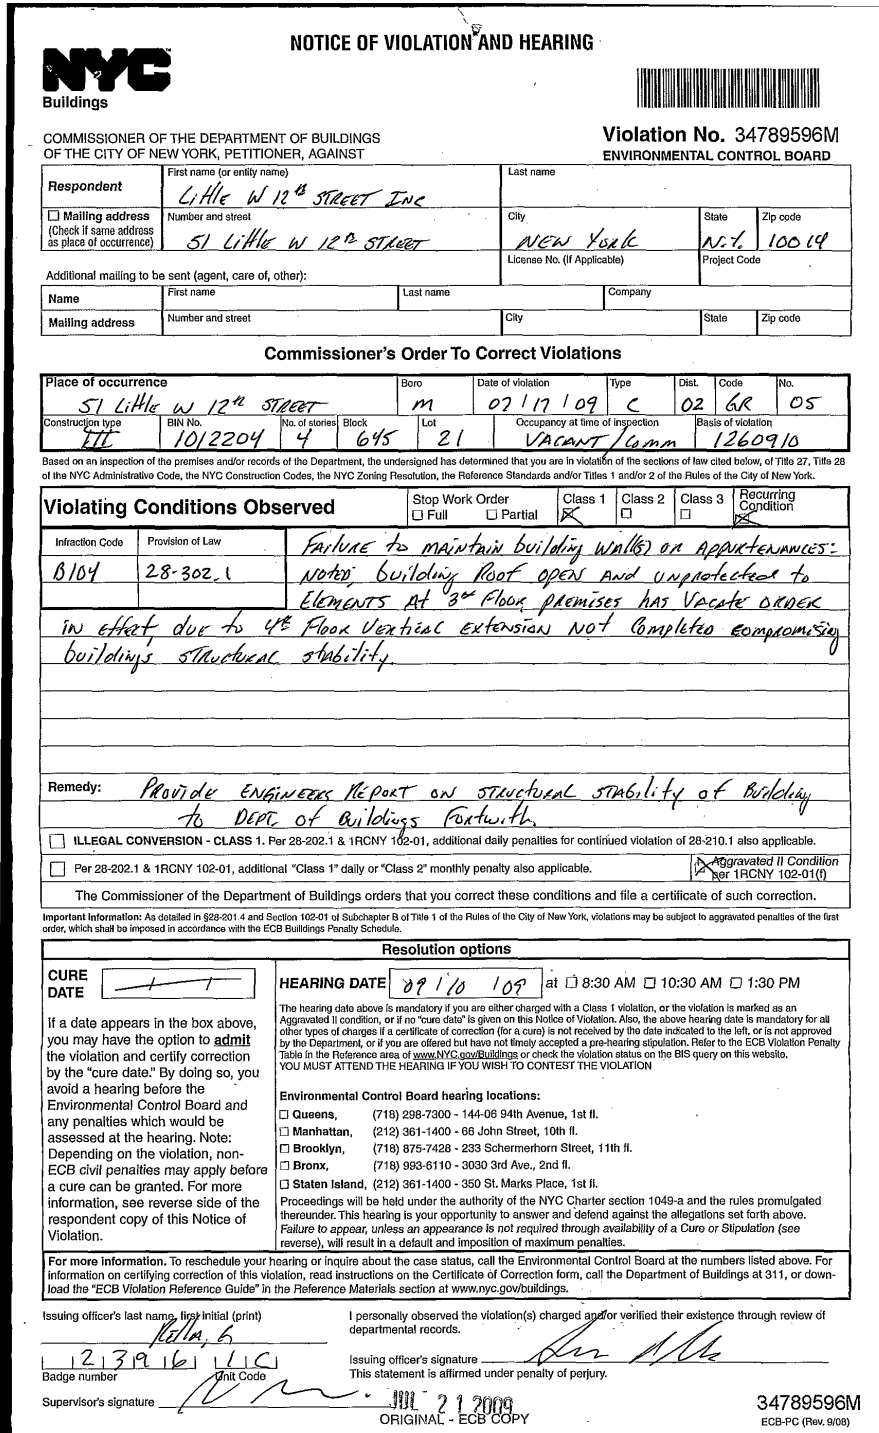 NOTICE OF VIOLATION AND HEARING
NYC
Buildings
COMMISSIONER OF THE DEPARTMENT OF BUILDINGS
OF THE CITY OF NEW YORK, PETITIONER, AGAINST
Violation No. 34789596M
ENVIRONMENTAL CONTROL BOARD
Respondent
First name (or entity name)
Little W 12th STREET INC
Last name
☐ Mailing address
(Check if same address
as place of occurrence)
Number and street
51 Little W 12th STREET
City
NEW YORK
State
N.Y.
Zip code
10014
License No. (If Applicable)
Project Code
Additional mailing to be sent (agent, care of, other):
Name
First name
Last name
Company
Mailing address
Number and street
City
State
Zip code
Commissioner's Order To Correct Violations
Place of occurrence
51 Little W 12th STREET
Boro
M
Date of violation
07/17/09
Type
C
Dist.
02
Code
GR
No.
05
Construction type
III
BIN No.
1012204
No. of stories
4
Block
645
Lot
21
Occupancy at time of inspection
VACANT/Comm
Basis of violation
1260910
Based on an inspection of the premises and/or records of the Department, the undersigned has determined that you are in violation of the sections of law cited below, of Title 27, Title 28
of the NYC Administrative Code, the NYC Construction Codes, the NYC Zoning Resolution, the Reference Standards and/or Titles 1 and/or 2 of the Rules of the City of New York.
Violating Conditions Observed
Stop Work Order
☐ Full ☐ Partial
Class 1
☒
Class 2
☐
Class 3
☐
Recurring
Condition
☒
Infraction Code
B104
Provision of Law
28-302.1
FAILURE to MAINTAIN building WALL(S) OR APPURTENANCES:
NOTED, building ROOF OPEN AND UNPROTECTED to
ELEMENTS AT 3rd FLOOR, PREMISES HAS VACATE ORDER
IN effect, due to 4th FLOOR VERTICAL EXTENSION NOT COMPLETED COMPROMISING
buildings STRUCTURAL stability.
Remedy:
PROVIDE ENGINEERS REPORT ON STRUCTURAL STABILITY of Building
to DEPT. of Buildings FORTWITH.
☐ ILLEGAL CONVERSION - CLASS 1. Per 28-202.1 & 1RCNY 102-01, additional daily penalties for continued violation of 28-210.1 also applicable.
☐ Per 28-202.1 & 1RCNY 102-01, additional "Class 1" daily or "Class 2" monthly penalty also applicable.
☒ Aggravated II Condition
per 1RCNY 102-01(f)
The Commissioner of the Department of Buildings orders that you correct these conditions and file a certificate of such correction.
Important Information: As detailed in §28-201.4 and Section 102-01 of Subchapter B of Title 1 of the Rules of the City of New York, violations may be subject to aggravated penalties of the first
order, which shall be imposed in accordance with the ECB Builldings Penalty Schedule.
Resolution options
CURE
DATE
If a date appears in the box above,
you may have the option to admit
the violation and certify correction
by the "cure date." By doing so, you
avoid a hearing before the
Environmental Control Board and
any penalties which would be
assessed at the hearing. Note:
Depending on the violation, non-
ECB civil penalties may apply before
a cure can be granted. For more
information, see reverse side of the
respondent copy of this Notice of
Violation.
HEARING DATE 09/10/09 at ☐ 8:30 AM ☐ 10:30 AM ☐ 1:30 PM
The hearing date above is mandatory if you are either charged with a Class 1 violation, or the violation is marked as an
Aggravated II condition, or if no "cure date" is given on this Notice of Violation. Also, the above hearing date is mandatory for all
other types of charges if a certificate of correction (for a cure) is not received by the date indicated to the left, or is not approved
by the Department, or if you are offered but have not timely accepted a pre-hearing stipulation. Refer to the ECB Violation Penalty
Table in the Reference area of www.NYC.gov/Buildings or check the violation status on the BIS query on this website.
YOU MUST ATTEND THE HEARING IF YOU WISH TO CONTEST THE VIOLATION
Environmental Control Board hearing locations:
☐ Queens, (718) 298-7300 - 144-06 94th Avenue, 1st fl.
☐ Manhattan, (212) 361-1400 - 66 John Street, 10th fl.
☐ Brooklyn, (718) 875-7428 - 233 Schermerhorn Street, 11th fl.
☐ Bronx, (718) 993-6110 - 3030 3rd Ave., 2nd fl.
☐ Staten Island, (212) 361-1400 - 350 St. Marks Place, 1st fl.
Proceedings will be held under the authority of the NYC Charter section 1049-a and the rules promulgated
thereunder. This hearing is your opportunity to answer and defend against the allegations set forth above.
Failure to appear, unless an appearance is not required through availability of a Cure or Stipulation (see
reverse), will result in a default and imposition of maximum penalties.
For more information. To reschedule your hearing or inquire about the case status, call the Environmental Control Board at the numbers listed above. For
information on certifying correction of this violation, read instructions on the Certificate of Correction form, call the Department of Buildings at 311, or down-
load the "ECB Violation Reference Guide" in the Reference Materials section at www.nyc.gov/buildings.
Issuing officer's last name, first initial (print)
2396 1C
Badge number
Unit Code
Supervisor's signature
I personally observed the violation(s) charged and/or verified their existence through review of
departmental records.
Issuing officer's signature
This statement is affirmed under penalty of perjury.
JUL 21 2009
ORIGINAL - ECB COPY
34789596M
ECB-PC (Rev. 9/08)